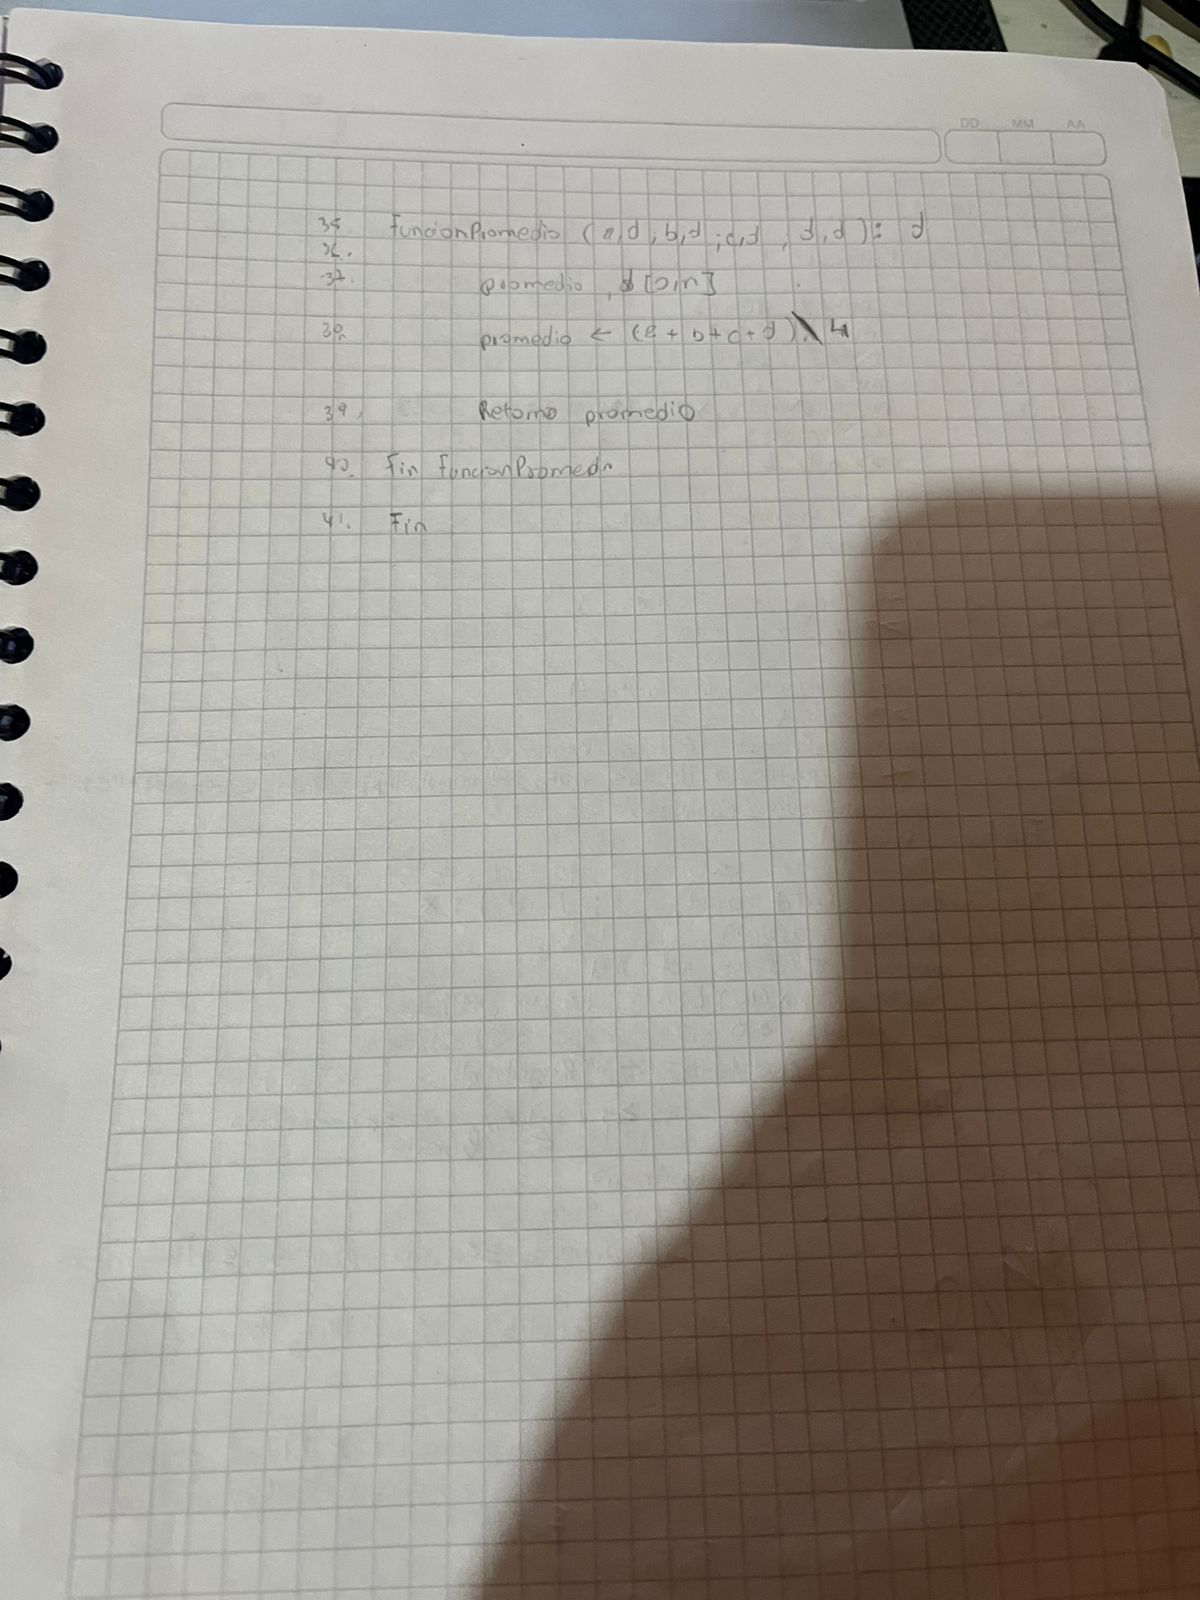 DD MM AA
35. FuncionPromedio (a,d, b,d, c,d, d,d): d
36.
37. promedio, d [0,n]
38. promedio ← (a + b + c + d) \ 4
39. Retorno promedio
40. Fin FuncionPromedio
41. Fin